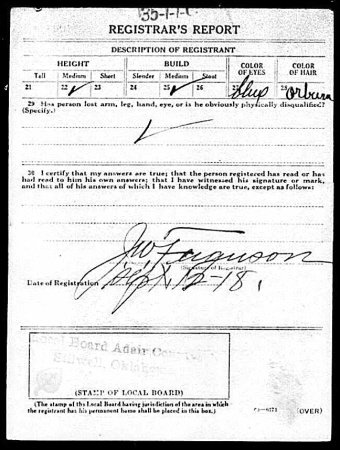 35-1-1-C
REGISTRAR'S REPORT
DESCRIPTION OF REGISTRANT
HEIGHT BUILD COLOR OF EYES COLOR OF HAIR
Tall Medium Short Slender Medium Stout
21 22 ✓ 23 24 25 ✓ 26 27 blue 28 orburn
29 Has person lost arm, leg, hand, eye, or is he obviously physically disqualified?
(Specify.)
✓
30 I certify that my answers are true; that the person registered has read or has
had read to him his own answers; that I have witnessed his signature or mark,
and that all of his answers of which I have knowledge are true, except as follows:
J W Ferguson
(Signature of Registrar)
Date of Registration Sept 12-18
Local Board Adair
Stilwell, Oklahoma
(STAMP OF LOCAL BOARD)
(The stamp of the Local Board having jurisdiction of the area in which
the registrant has his permanent home shall be placed in this box.)
(OVER)